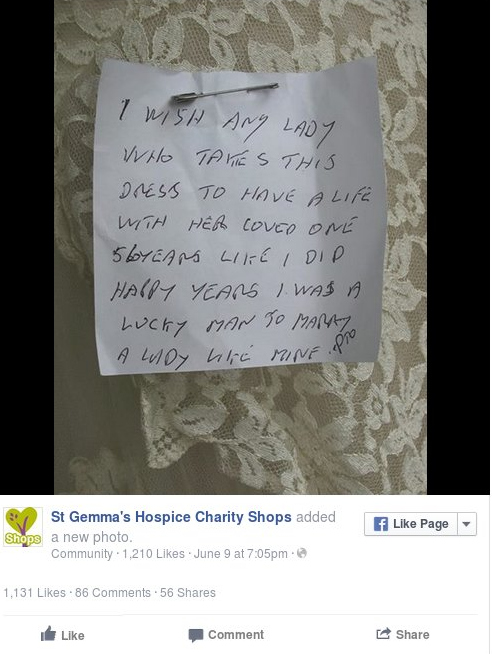 I WISH ANY LADY
WHO TAKES THIS
DRESS TO HAVE A LIFE
WITH HER LOVED ONE
56 YEARS LIKE I DID
HAPPY YEARS I WAS A
LUCKY MAN TO MARRY
A LADY LIKE MINE. PTO
Shops
St Gemma's Hospice Charity Shops added
a new photo.
Community · 1,210 Likes · June 9 at 7:05pm ·
Like Page
1,131 Likes · 86 Comments · 56 Shares
Like Comment Share